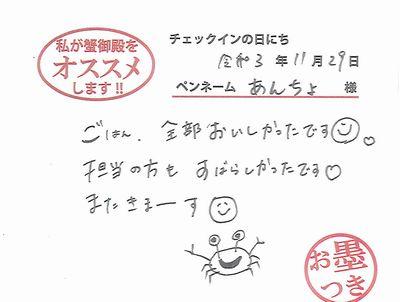 私が蟹御殿を
オススメ
します!!
チェックインの日にち
令和3年11月29日
ペンネーム あんちょ 様
ごはん、全部おいしかったです
担当の方も すばらしかったです♡
またきまーす
お墨
つき